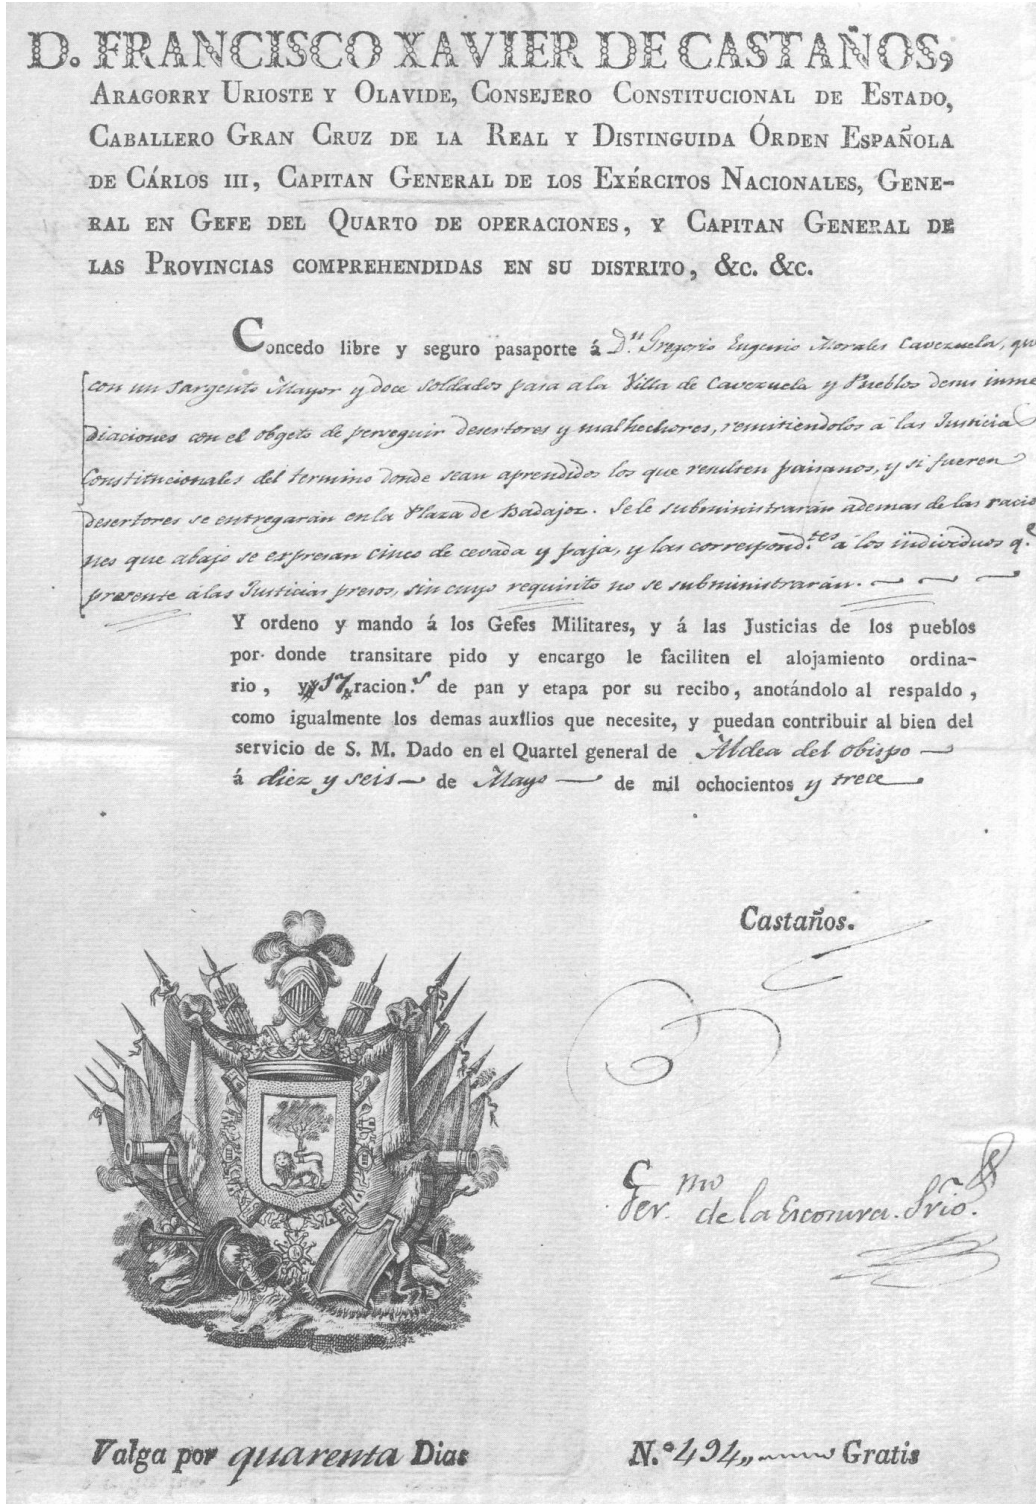 D. FRANCISCO XAVIER DE CASTAÑOS,
ARAGORRY URIOSTE Y OLAVIDE, CONSEJERO CONSTITUCIONAL DE ESTADO,
CABALLERO GRAN CRUZ DE LA REAL Y DISTINGUIDA ÓRDEN ESPAÑOLA
DE CÁRLOS III, CAPITAN GENERAL DE LOS EXÉRCITOS NACIONALES, GENE-
RAL EN GEFE DEL QUARTO DE OPERACIONES, Y CAPITAN GENERAL DE
LAS PROVINCIAS COMPREHENDIDAS EN SU DISTRITO, &c. &c.
Concedo libre y seguro pasaporte á D.ⁿ Gregorio Eugenio Morales Cavezuela, que
con un Sargento Mayor y doce soldados pasa a la Villa de Cavezuela y Pueblos de sus inme
diaciones con el obgeto de perseguir desertores y malhechores, remitiendolos á las Justicia
Constitucionales del termino donde sean aprendidos los que resulten paisanos, y si fueren
desertores se entregarán en la Plaza de Badajoz. Se le subministrarán ademas de las racio
nes que abajo se expresan cinco de cevada y paja, y las correspond.tes á los individuos q.e
presente á las Justicias presos, sin cuyo requisito no se subministrarán.
Y ordeno y mando á los Gefes Militares, y á las Justicias de los pueblos
por donde transitare pido y encargo le faciliten el alojamiento ordina-
rio, y 17 racion.s de pan y etapa por su recibo, anotándolo al respaldo,
como igualmente los demas auxilios que necesite, y puedan contribuir al bien del
servicio de S. M. Dado en el Quartel general de Aldea del obispo
á diez y seis de Mayo de mil ochocientos y trece
Castaños.
Ger.mo de la Escosura. Srio.
Valga por quarenta Dias
N.º 494 Gratis